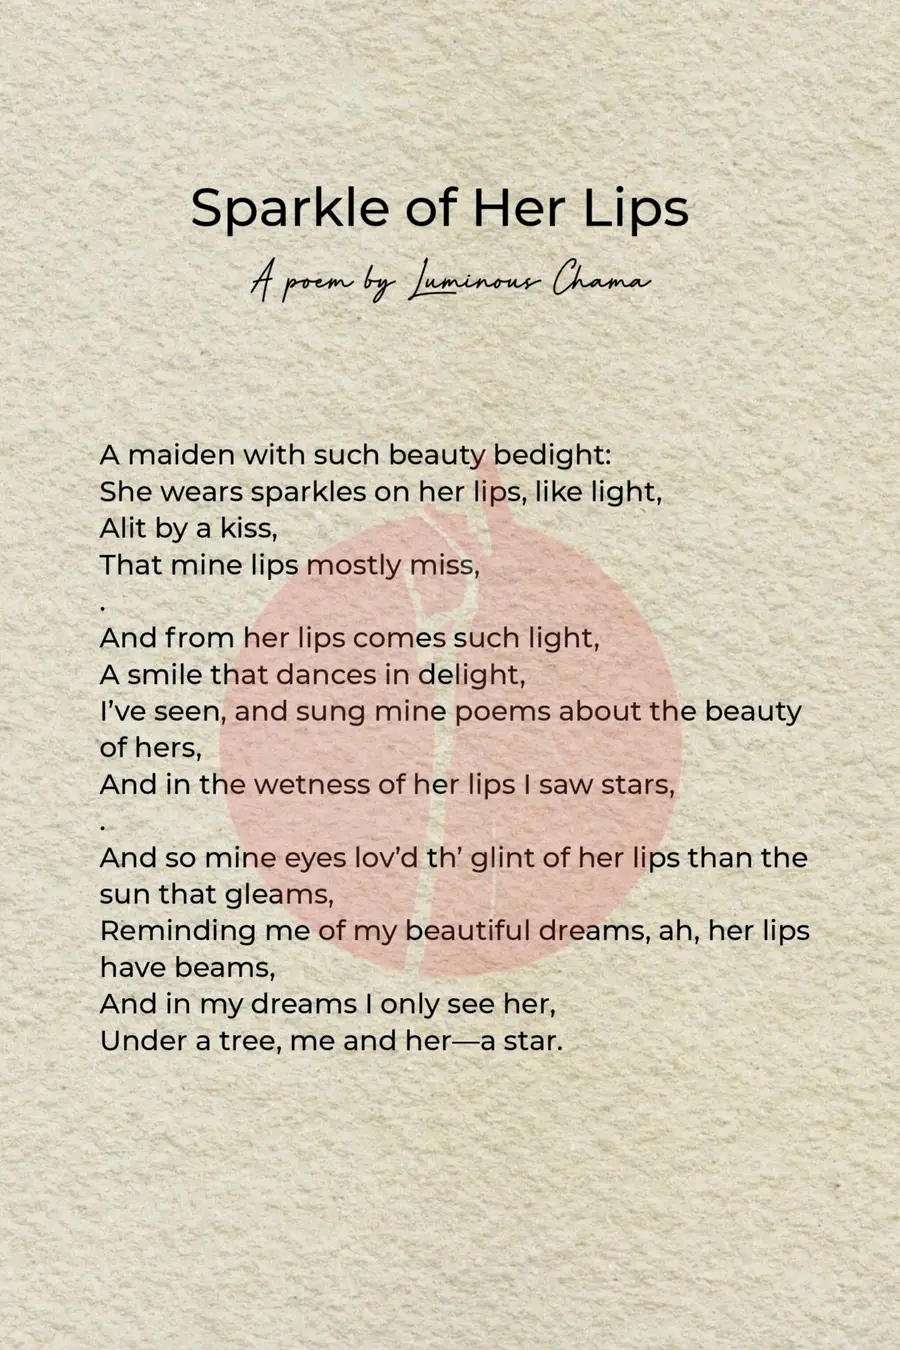 Sparkle of Her Lips
A poem by Luminous Chama
A maiden with such beauty bedight:
She wears sparkles on her lips, like light,
Alit by a kiss,
That mine lips mostly miss,
.
And from her lips comes such light,
A smile that dances in delight,
I’ve seen, and sung mine poems about the beauty
of hers,
And in the wetness of her lips I saw stars,
.
And so mine eyes lov’d th’ glint of her lips than the
sun that gleams,
Reminding me of my beautiful dreams, ah, her lips
have beams,
And in my dreams I only see her,
Under a tree, me and her—a star.